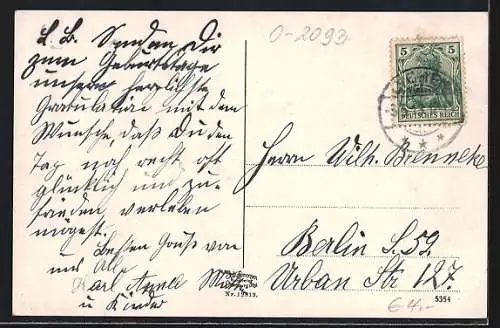 L. B. Senden Dir
zum Geburtstage
unsere herzlichste
Gratulation mit dem
Wunsche, daß Du den
Tag noch recht oft
glücklich und zu-
frieden verleben
mögest.
Besten Gruß von
uns Alle
Karl Anna
u Kinder
O-2093
5 5
DEUTSCHES REICH
Herrn Wilh. Brenneke
Berlin S. 52
Urban Str 127.
Nr. 12813.
5354
€ 4.-